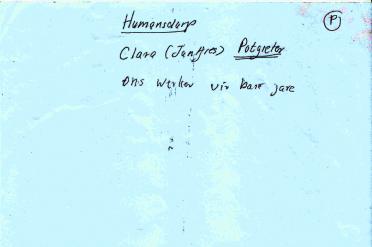 Humansdorp (P)
Clara (Janffies) Potgieter
Ons werker vir baie jare